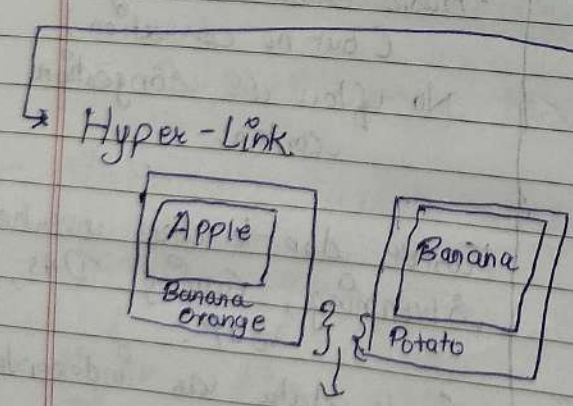 Hyper-Link
Apple
Banana
Orange
Banana
Potato